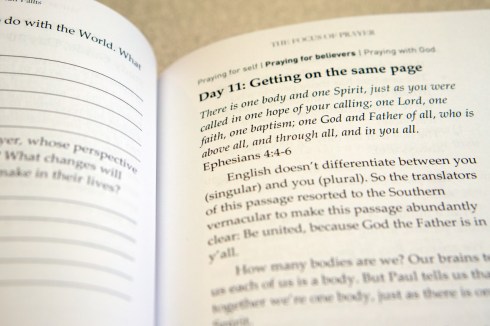 do with the World. What
yer, whose perspective
What changes will
make in their lives?
THE FOCUS OF PRAYER
Praying for self | Praying for believers | Praying with God
Day 11: Getting on the same page
There is one body and one Spirit, just as you were
called in one hope of your calling; one Lord, one
faith, one baptism; one God and Father of all, who is
above all, and through all, and in you all.
Ephesians 4:4-6
English doesn't differentiate between you
(singular) and you (plural). So the translators
of this passage resorted to the Southern
vernacular to make this passage abundantly
clear: Be united, because God the Father is in
y'all.
How many bodies are we? Our brains
us each of us is a body. But Paul tells us tha
together we're one body, just as there is
Spirit.